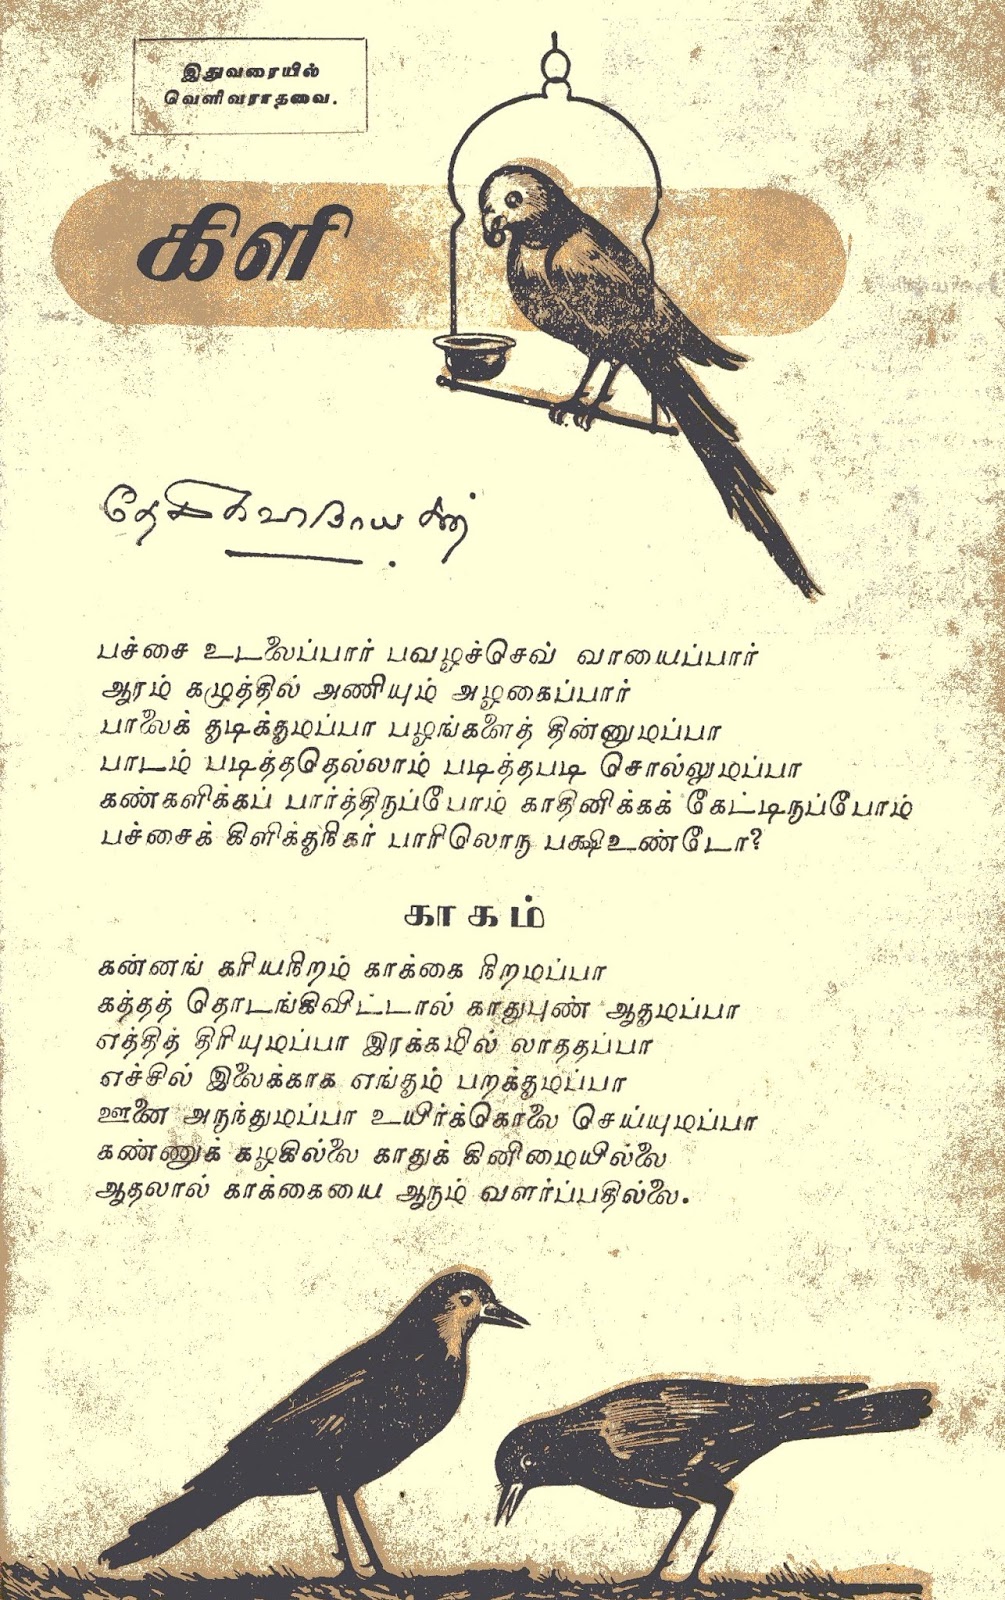 இதுவரையில்
வெளிவராதவை.
கிளி
தேசிகவிநாயகன்
பச்சை உடலைப்பார் பவழச்செவ் வாயைப்பார்
ஆரம் கழுத்தில் அணியும் அழகைப்பார்
பாலைக் குடிக்குமப்பா பழங்களைத் தின்னுமப்பா
பாடம் படித்ததெல்லாம் படித்தபடி சொல்லுமப்பா
கண்களிக்கப் பார்த்திருப்போம் காதினிக்கக் கேட்டிருப்போம்
பச்சைக் கிளிக்குநிகர் பாரிலொரு பக்ஷிஉண்டோ?
காகம்
கன்னங் கரியநிறம் காக்கை நிறமப்பா
கத்தத் தொடங்கிவிட்டால் காதுபுண் ஆகுமப்பா
எத்தித் திரியுமப்பா இரக்கமில் லாததப்பா
எச்சில் இலைக்காக எங்கும் பறக்குமப்பா
ஊனை அருந்துமப்பா உயிர்க்கொலை செய்யுமப்பா
கண்ணுக் கழகில்லை காதுக் கினிமையில்லை
ஆதலால் காக்கையை ஆரும் வளர்ப்பதில்லை.